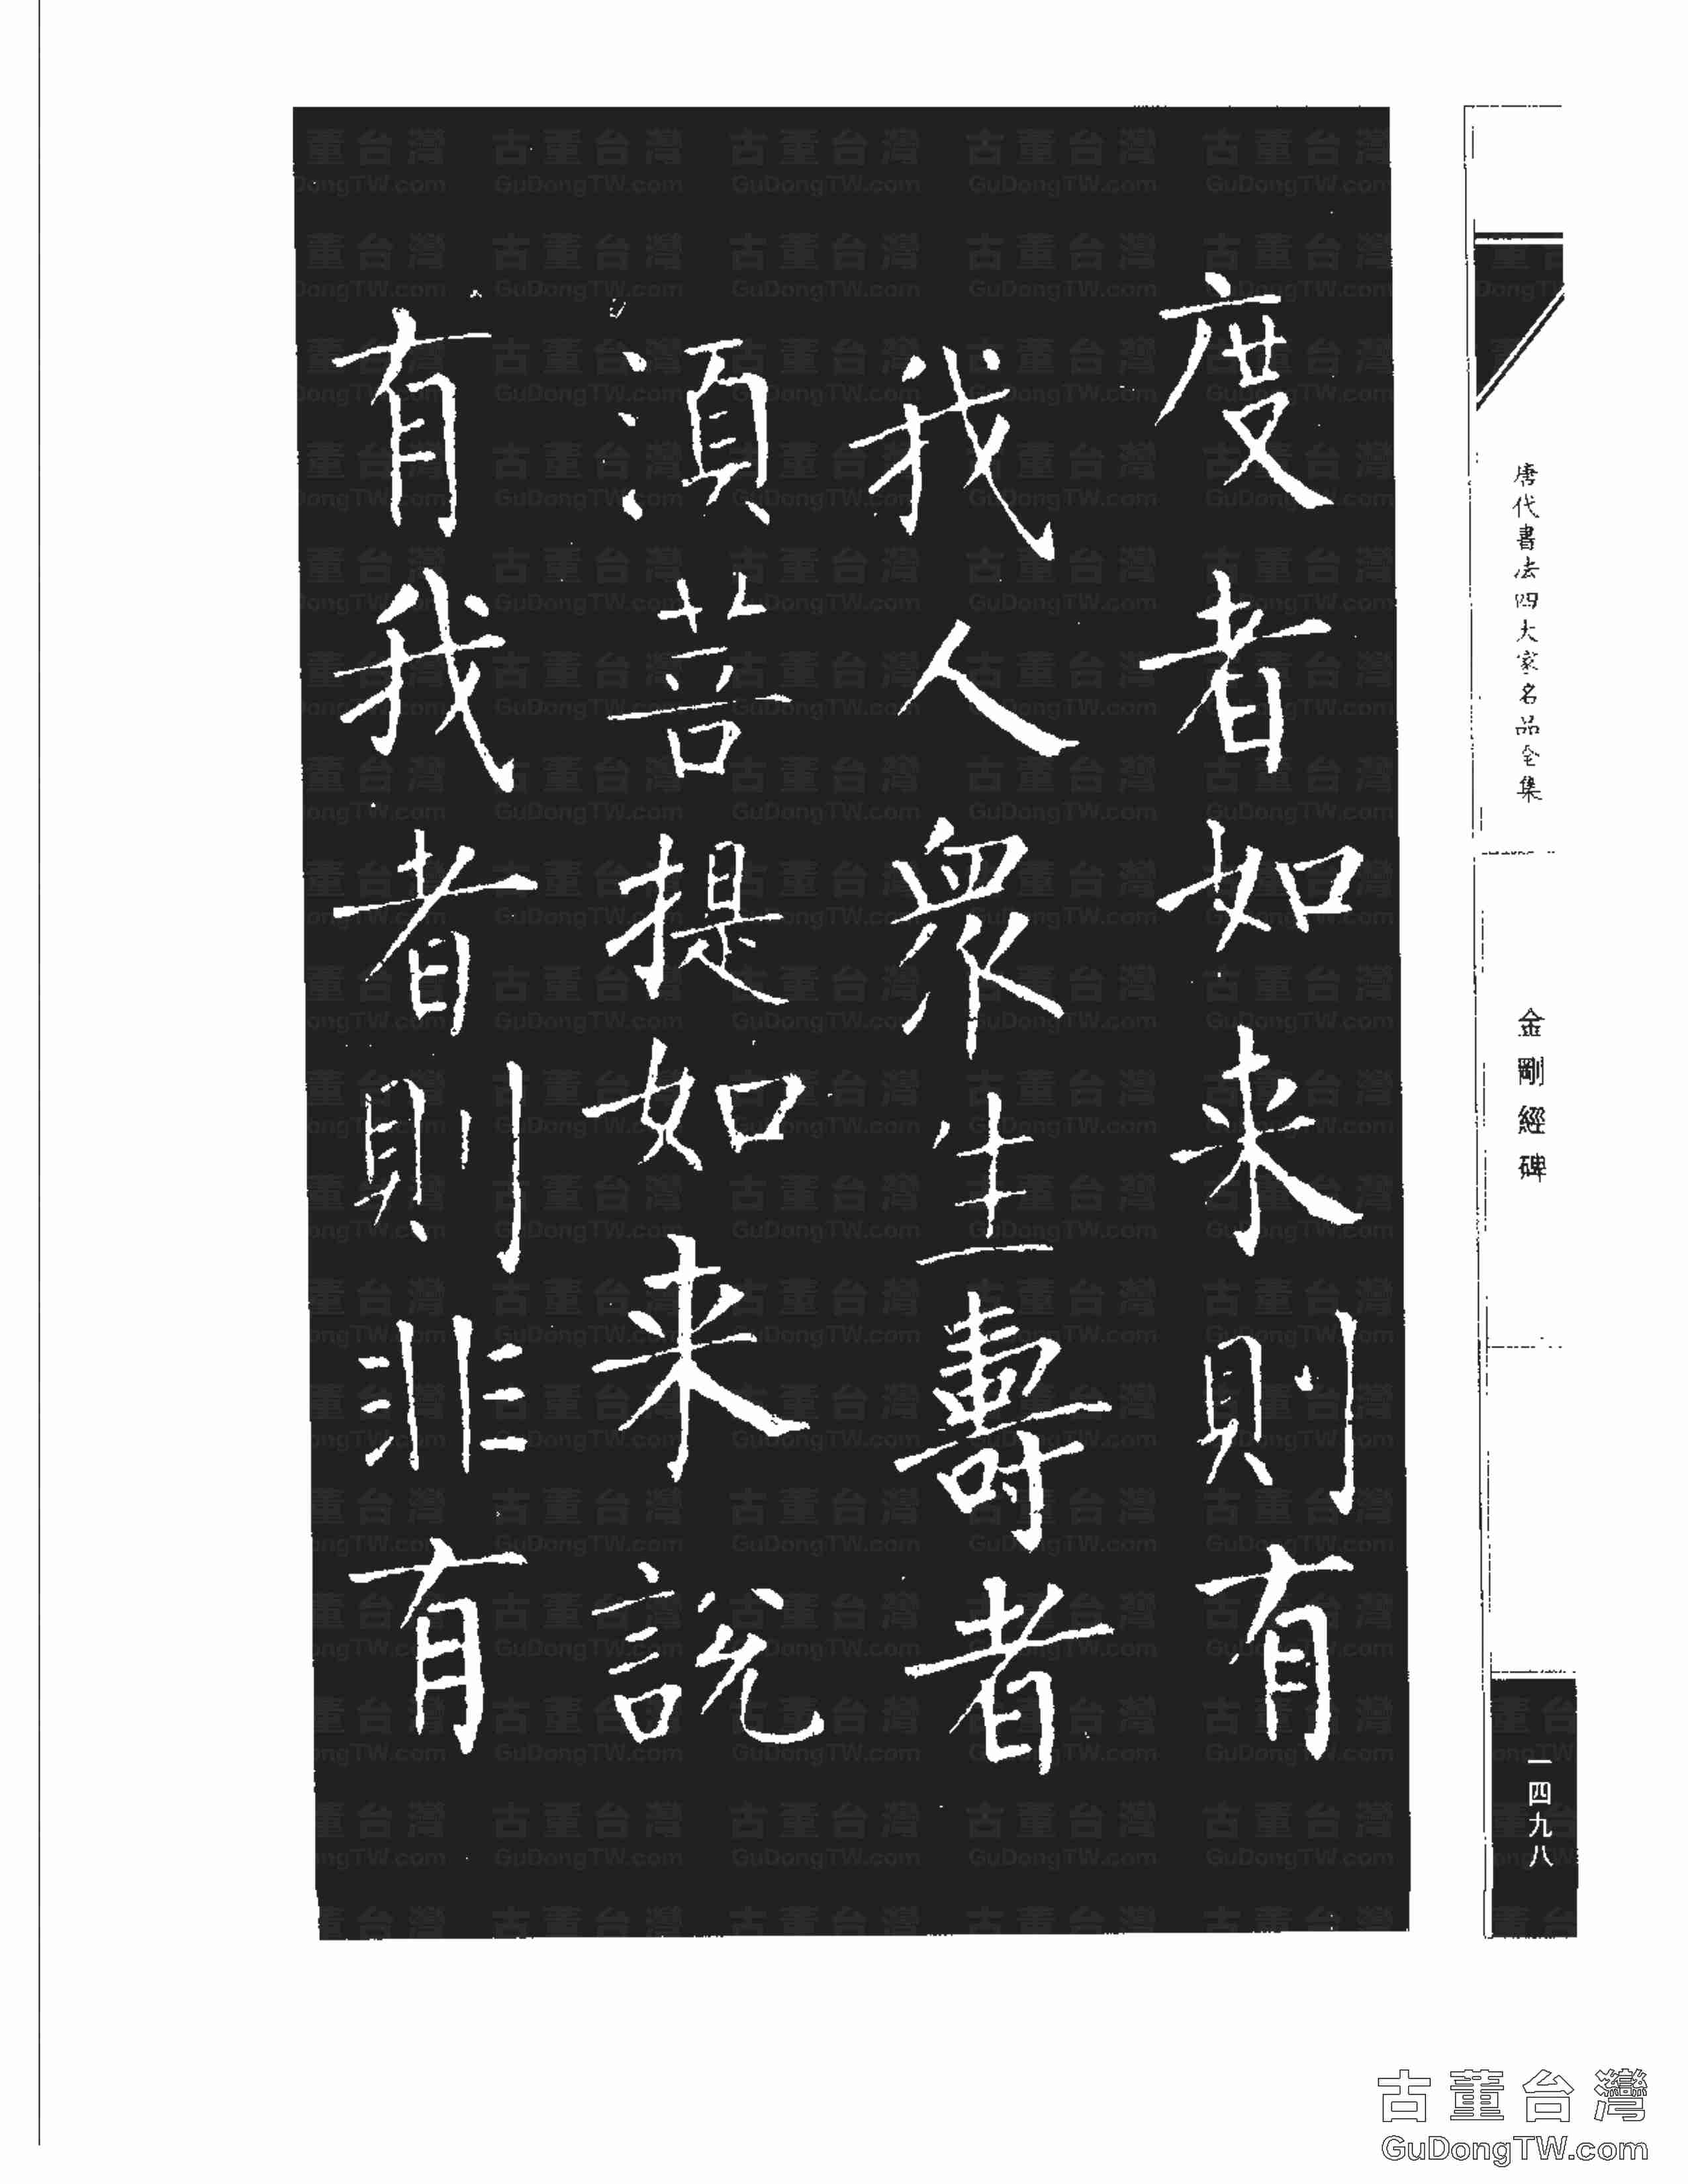 度者如来則有
我人衆生壽者
湏菩提如来說
有我者則非有
唐代書法四大家名品全集
金剛經碑
一四九八
古董台灣
GuDongTW.com